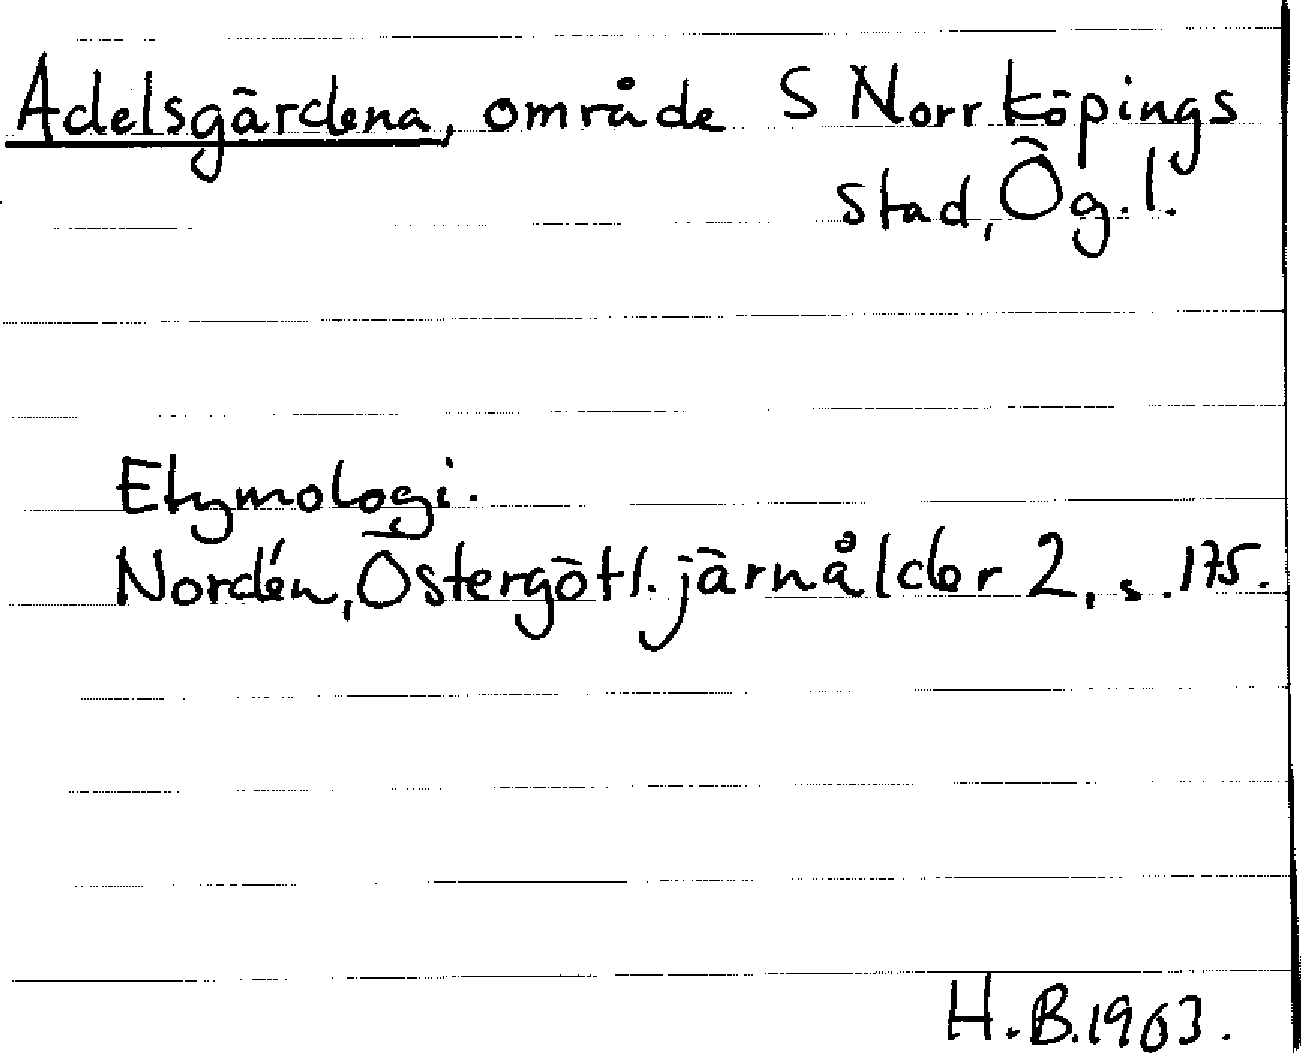 Adelsgärdena, område S Norrköpings
stad, Ög. l.
Etymologi.
Nordén, Östergötl. järnålder 2, s. 175.
H. B. 1963.